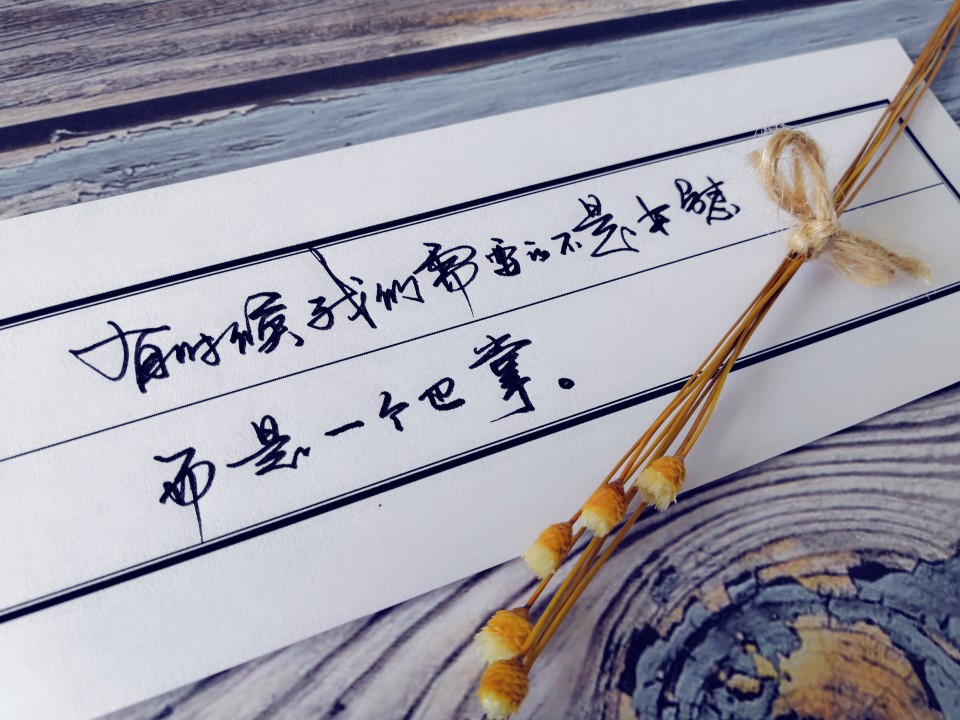 有时候我们需要的不是安慰
而是一个巴掌。